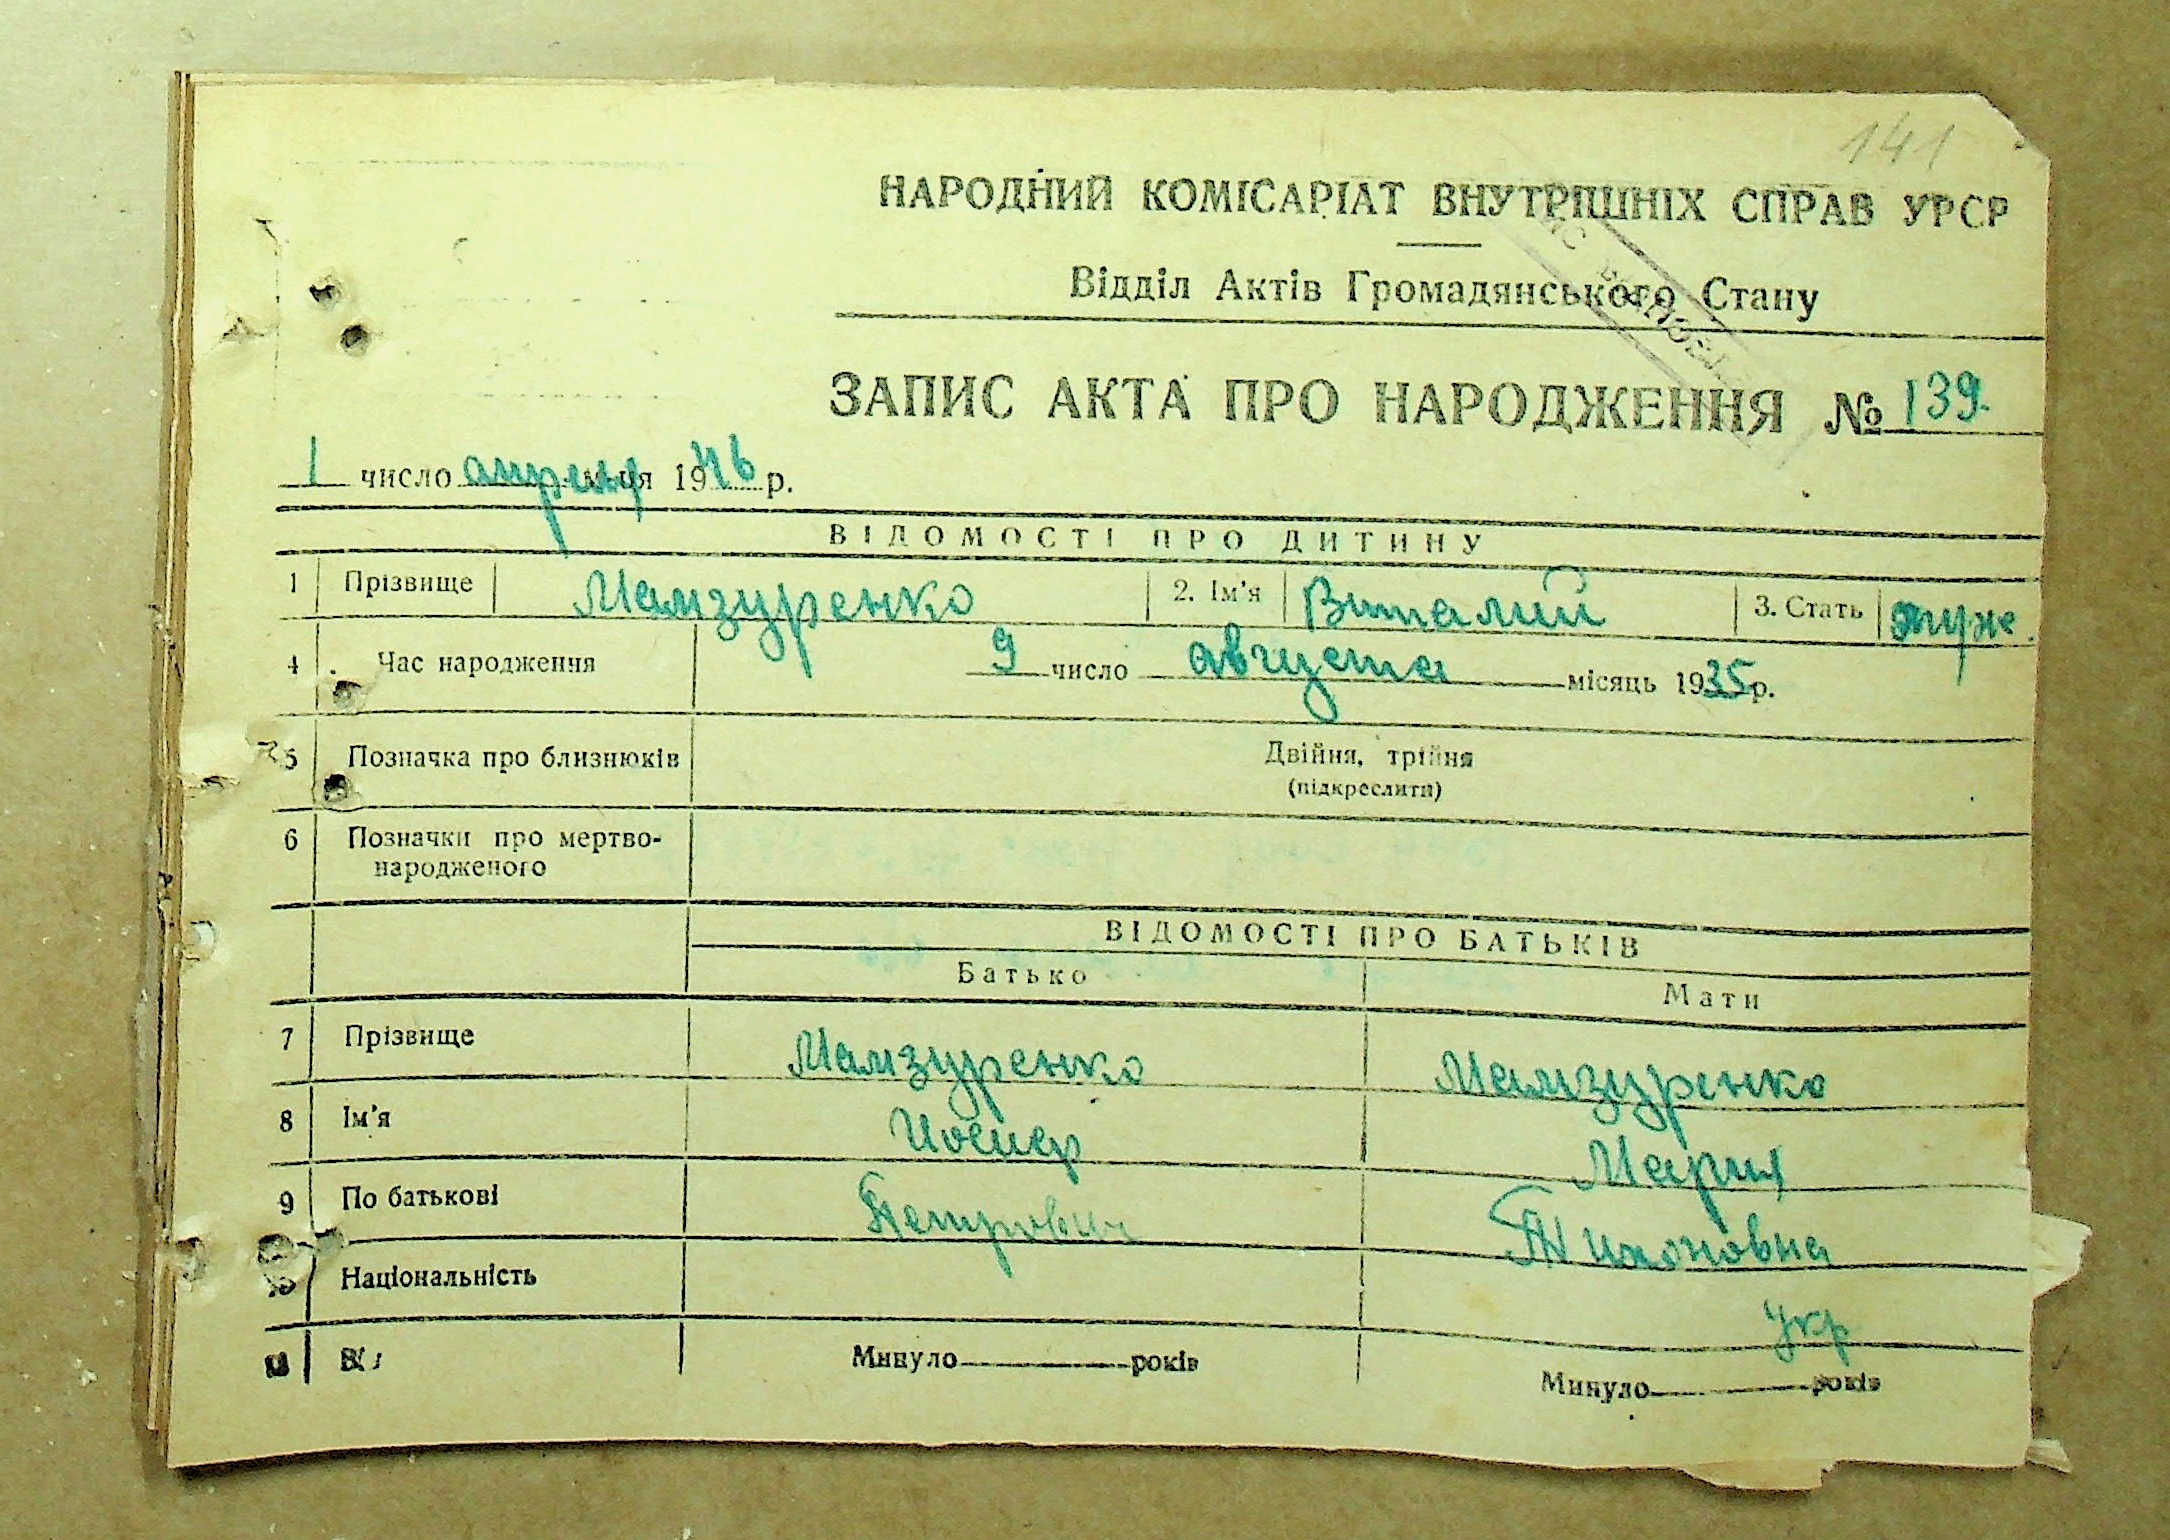 141
НАРОДНИЙ КОМІСАРІАТ ВНУТРІШНІХ СПРАВ УРСР
Відділ Актів Громадянського Стану
ЗАПИС АКТА ПРО НАРОДЖЕННЯ № 139.
1 число апреля м-ця 1946 р.
ВІДОМОСТІ ПРО ДИТИНУ
1 Прізвище Мамзуренко 2. Ім'я Виталий 3. Стать муж.
4 Час народження 9 число августа місяць 1935 р.
5 Позначка про близнюків Двійня, трійня
(підкреслити)
6 Позначки про мертво-
народженого
ВІДОМОСТІ ПРО БАТЬКІВ
Батько Мати
7 Прізвище Мамзуренко Мамзуренко
8 Ім'я Иосиф Мария
9 По батькові Петрович
Національність Укр
Минуло років Минуло років